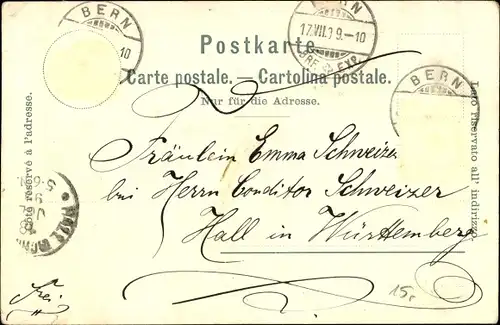 BERN
BERN
17.VII.99.-10
BRF. EXP.
10
Postkarte.
Carte postale. — Cartolina postale.
Nur für die Adresse.
BERN
Côté réservé à l'adresse.
Lato riservato all' indirizzo.
Fräulein Emma Schweizer
bei Herrn Conditor Schweizer
Hall in Württemberg
HALL
5-6
Frei
15.